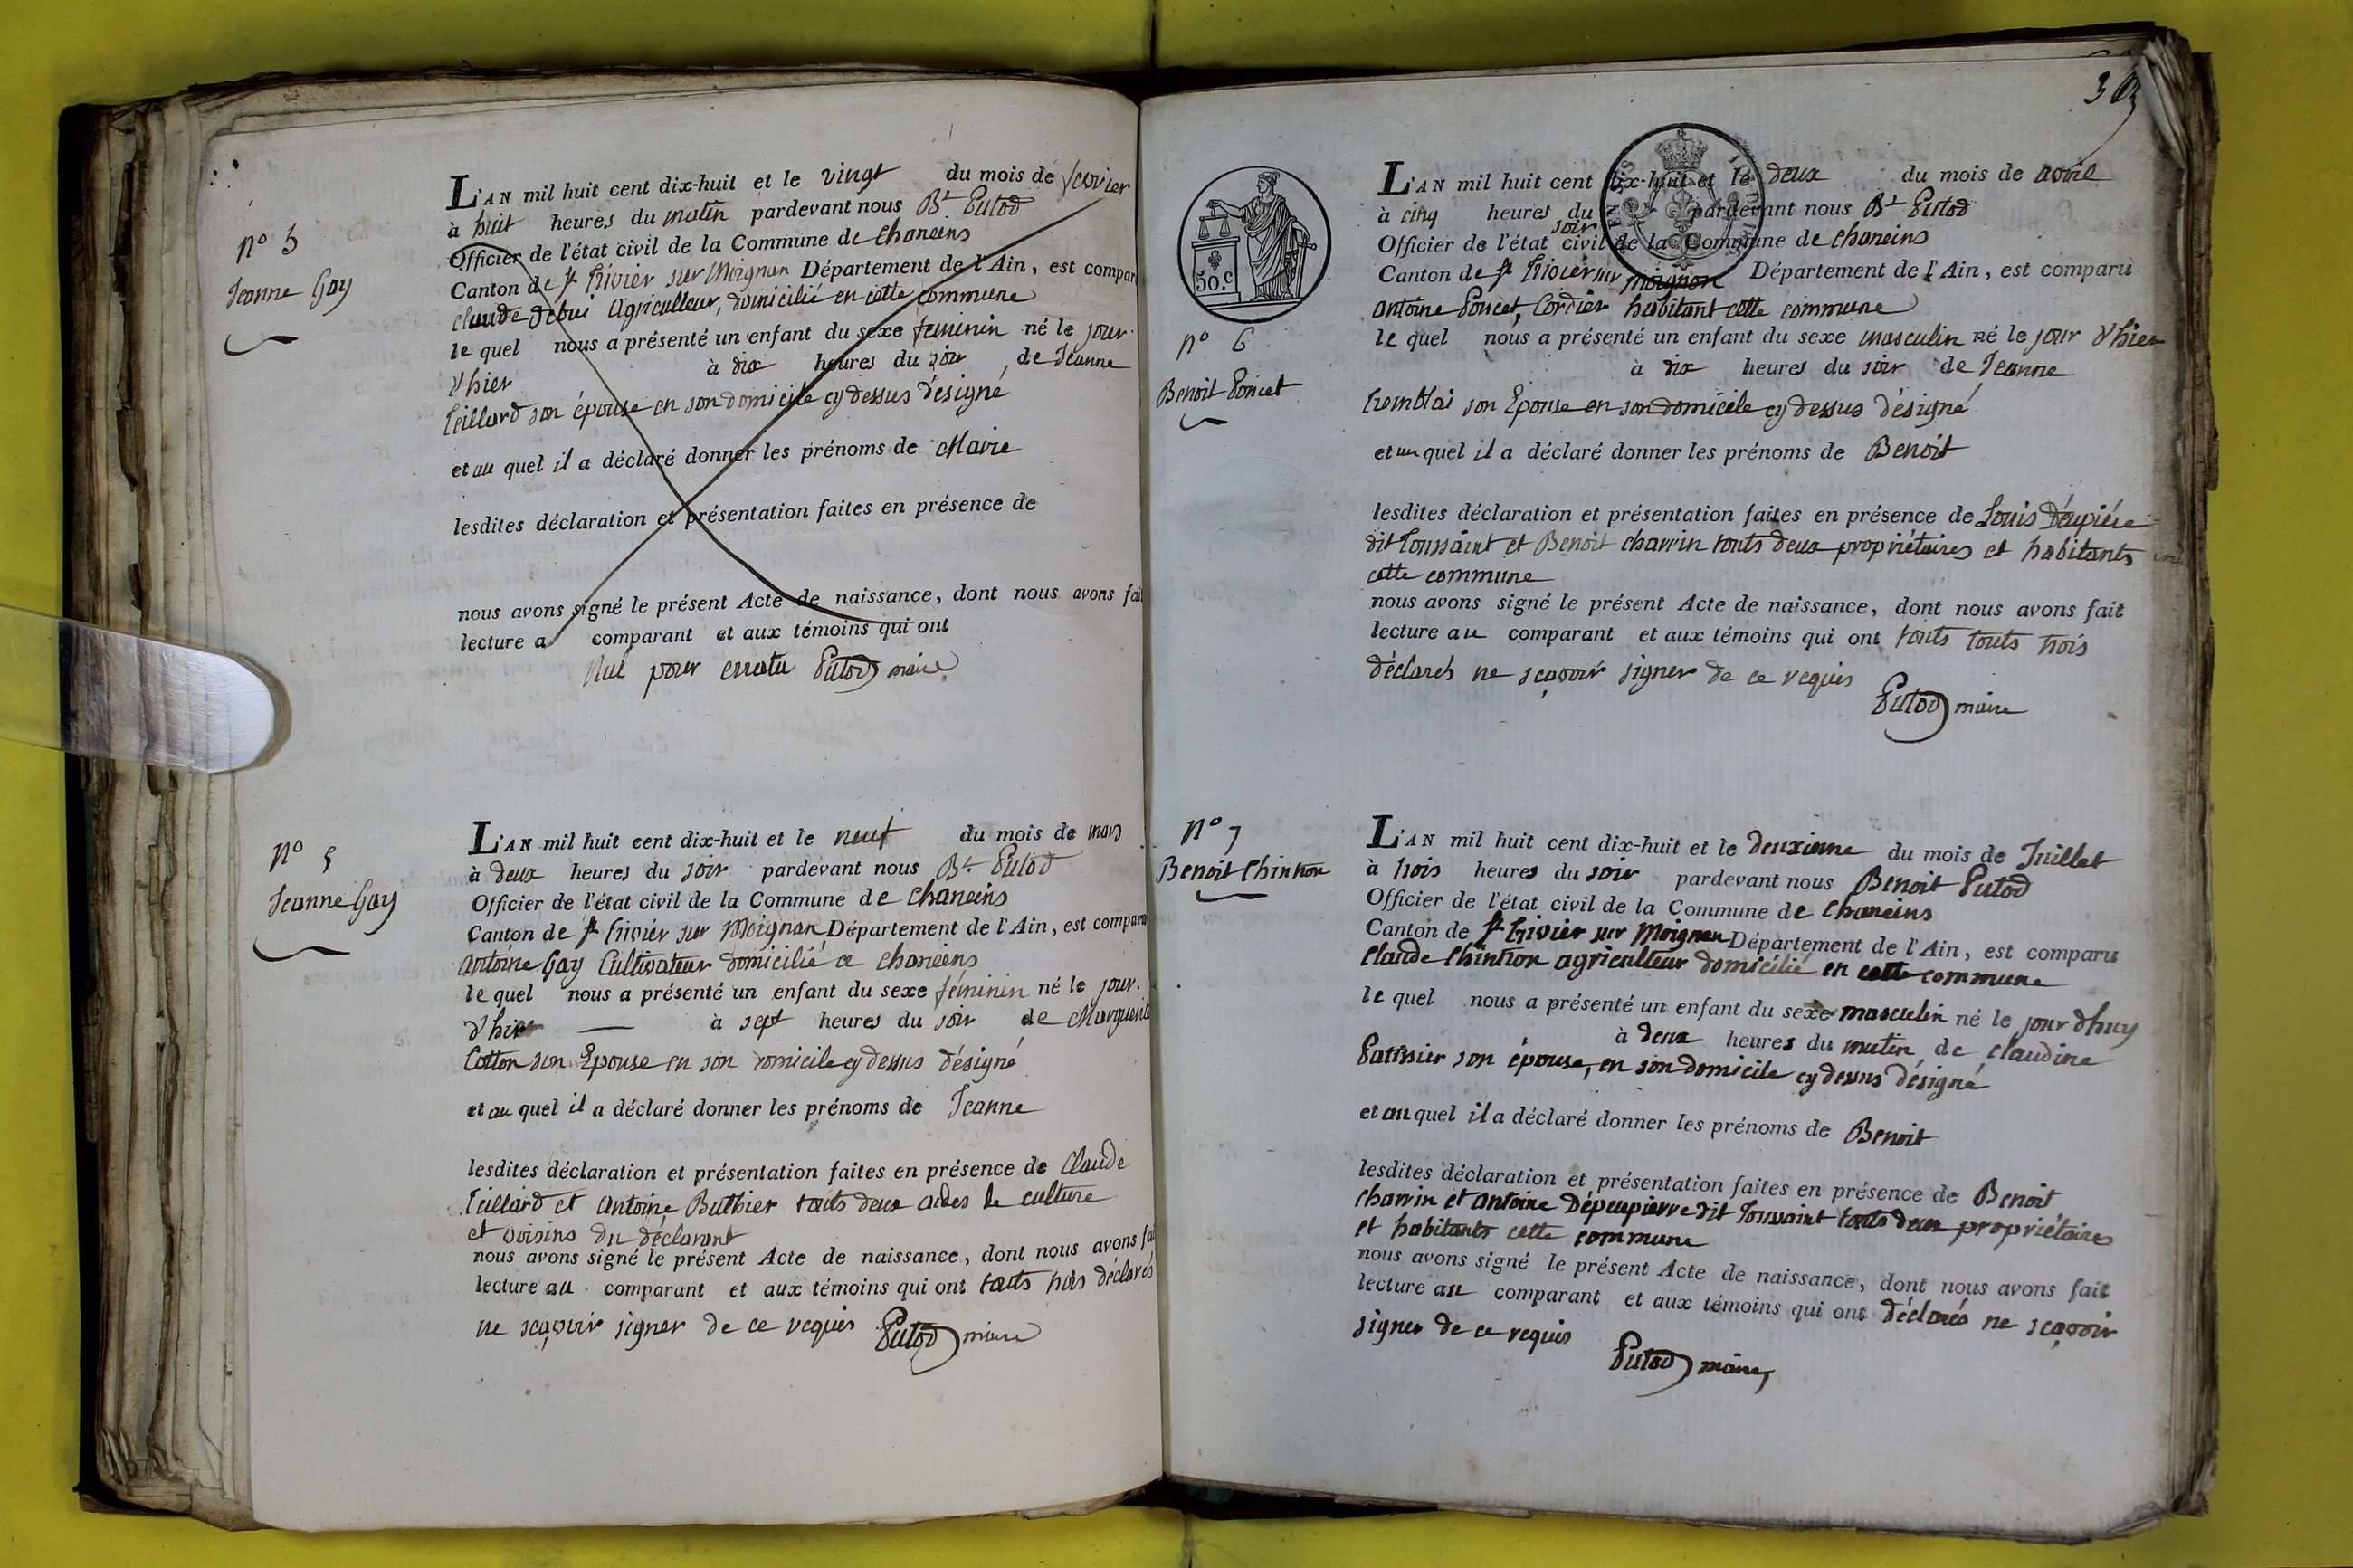 nº 5
Jeanne Gay
L'AN mil huit cent dix-huit et le vingt du mois de fevrier
à huit heures du matin pardevant nous Bt. Putod
Officier de l'état civil de la Commune de Chaneins
Canton de St Trivier sur Moignan Département de l'Ain, est compar
claude debui Agriculteur, domicilié en cette commune
le quel nous a présenté un enfant du sexe feminin né le jour
d'hier à dix heures du soir, de Jeanne
Teillard son épouse en son domicile cy dessus désigné
et au quel il a déclaré donner les prénoms de Marie
lesdites déclaration et présentation faites en présence de
nous avons signé le présent Acte de naissance, dont nous avons fait
lecture a comparant et aux témoins qui ont
Nul pour errata Putod maire
nº 5
Jeanne Gay
L'AN mil huit cent dix-huit et le neuf du mois de mars
à deux heures du soir pardevant nous Bt. Putod
Officier de l'état civil de la Commune de Chaneins
Canton de St Trivier sur Moignan Département de l'Ain, est comparu
Antoine Gay Cultivateur domicilié a chaneins
le quel nous a présenté un enfant du sexe féminin né le jour
d'hier — à sept heures du soir de Marguerite
Cotton son Epouse en son domicile cy dessus désigné
et au quel il a déclaré donner les prénoms de Jeanne
lesdites déclaration et présentation faites en présence de Claude
Teillard et Antoine Buthier touts deux aides de culture
et voisins du déclarant
nous avons signé le présent Acte de naissance, dont nous avons fai
lecture au comparant et aux témoins qui ont touts trois déclarés
ne sçavoir signer de ce requis Putod maire
50.c
nº 6
Benoit Poncet
L'AN mil huit cent dix-huit et le deux du mois de avril
à cinq heures du soir pardevant nous Bt Putod
Officier de l'état civil de la Commune de chaneins
Canton de St Trivier sur Moignan Département de l'Ain, est comparu
Antoine Poncet, Cordier habitant cette commune
le quel nous a présenté un enfant du sexe masculin né le jour d'hier
à dix heures du soir de Jeanne
tremblai son Epouse en son domicile cy dessus désigné
et au quel il a déclaré donner les prénoms de Benoit
lesdites déclaration et présentation faites en présence de Louis
dit Toussaint et Benoit charvin touts deux propriétaires et habitants en
cette commune
nous avons signé le présent Acte de naissance, dont nous avons fait
lecture au comparant et aux témoins qui ont touts touts trois
déclarés ne sçavoir signer de ce requis
Putod maire
nº 7
Benoit Chintron
L'AN mil huit cent dix-huit et le deuxieme du mois de Juillet
à trois heures du soir pardevant nous Benoit Putod
Officier de l'état civil de la Commune de Chaneins
Canton de St Trivier sur Moignan Département de l'Ain, est comparu
Claude Chintron agriculteur domicilié en cette commune
le quel nous a présenté un enfant du sexe masculin né le jour d'huy
à deux heures du matin, de claudine
Patissier son épouse, en son domicile cy dessus désigné
et au quel il a déclaré donner les prénoms de Benoit
lesdites déclaration et présentation faites en présence de Benoit
charvin et antoine Dépeupierre dit Toussaint touts deux propriétaires
et habitants cette commune
nous avons signé le présent Acte de naissance, dont nous avons fait
lecture au comparant et aux témoins qui ont déclarés ne sçavoir
signer de ce requis
Putod maire,